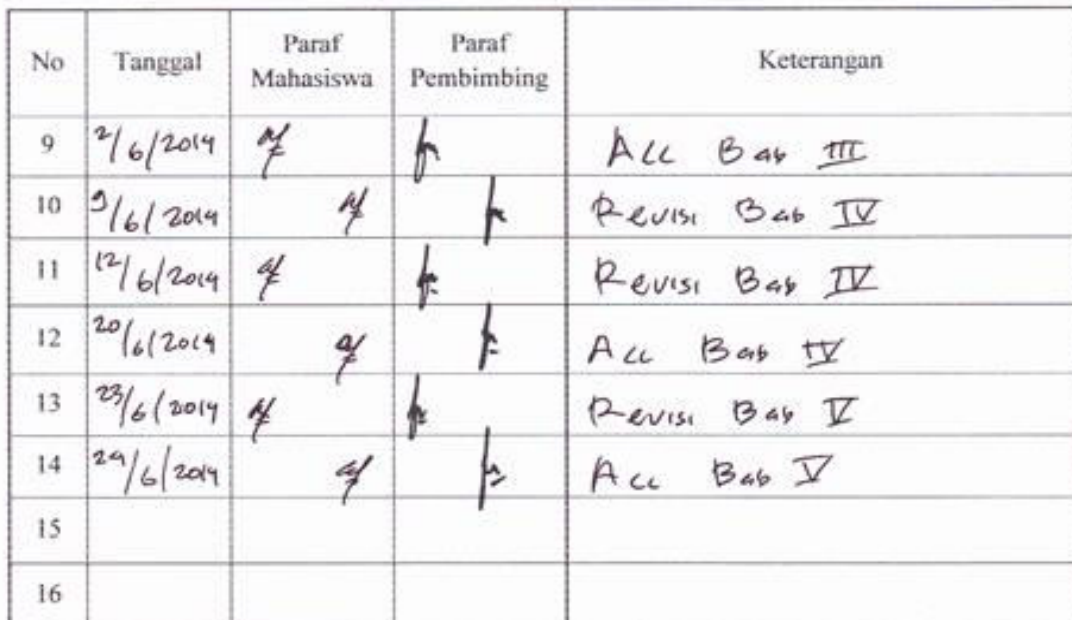 No Tanggal Paraf Mahasiswa Paraf Pembimbing Keterangan
9 2/6/2014 Acc Bab III
10 9/6/2014 Revisi Bab IV
11 12/6/2014 Revisi Bab IV
12 20/6/2014 Acc Bab IV
13 23/6/2014 Revisi Bab V
14 24/6/2014 Acc Bab V
15
16